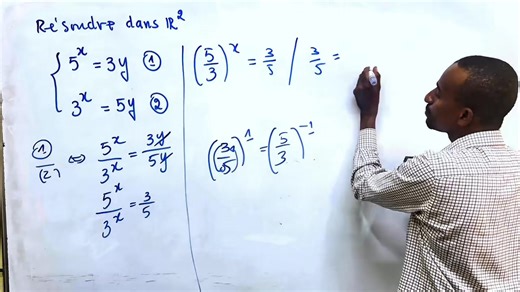 Résoudre dans ℝ²
5^x = 3y ①
3^x = 5y ②
①/(2) ⇔ 5^x/3^x = 3y/5y
5^x/3^x = 3/5
(5/3)^x = 3/5 / 3/5 =
(3/5)^1 = (5/3)^-1